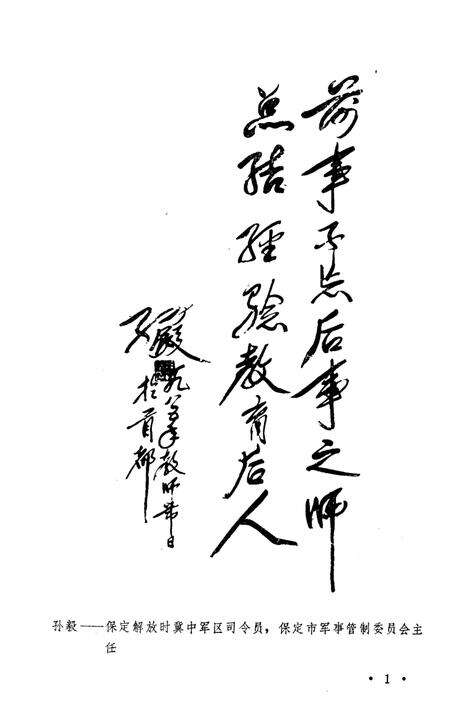 前事不忘后事之师
总结经验教育后人
孙毅
年教师节日
於首都
孙毅——保定解放时冀中军区司令员，保定市军事管制委员会主
任
· 1 ·